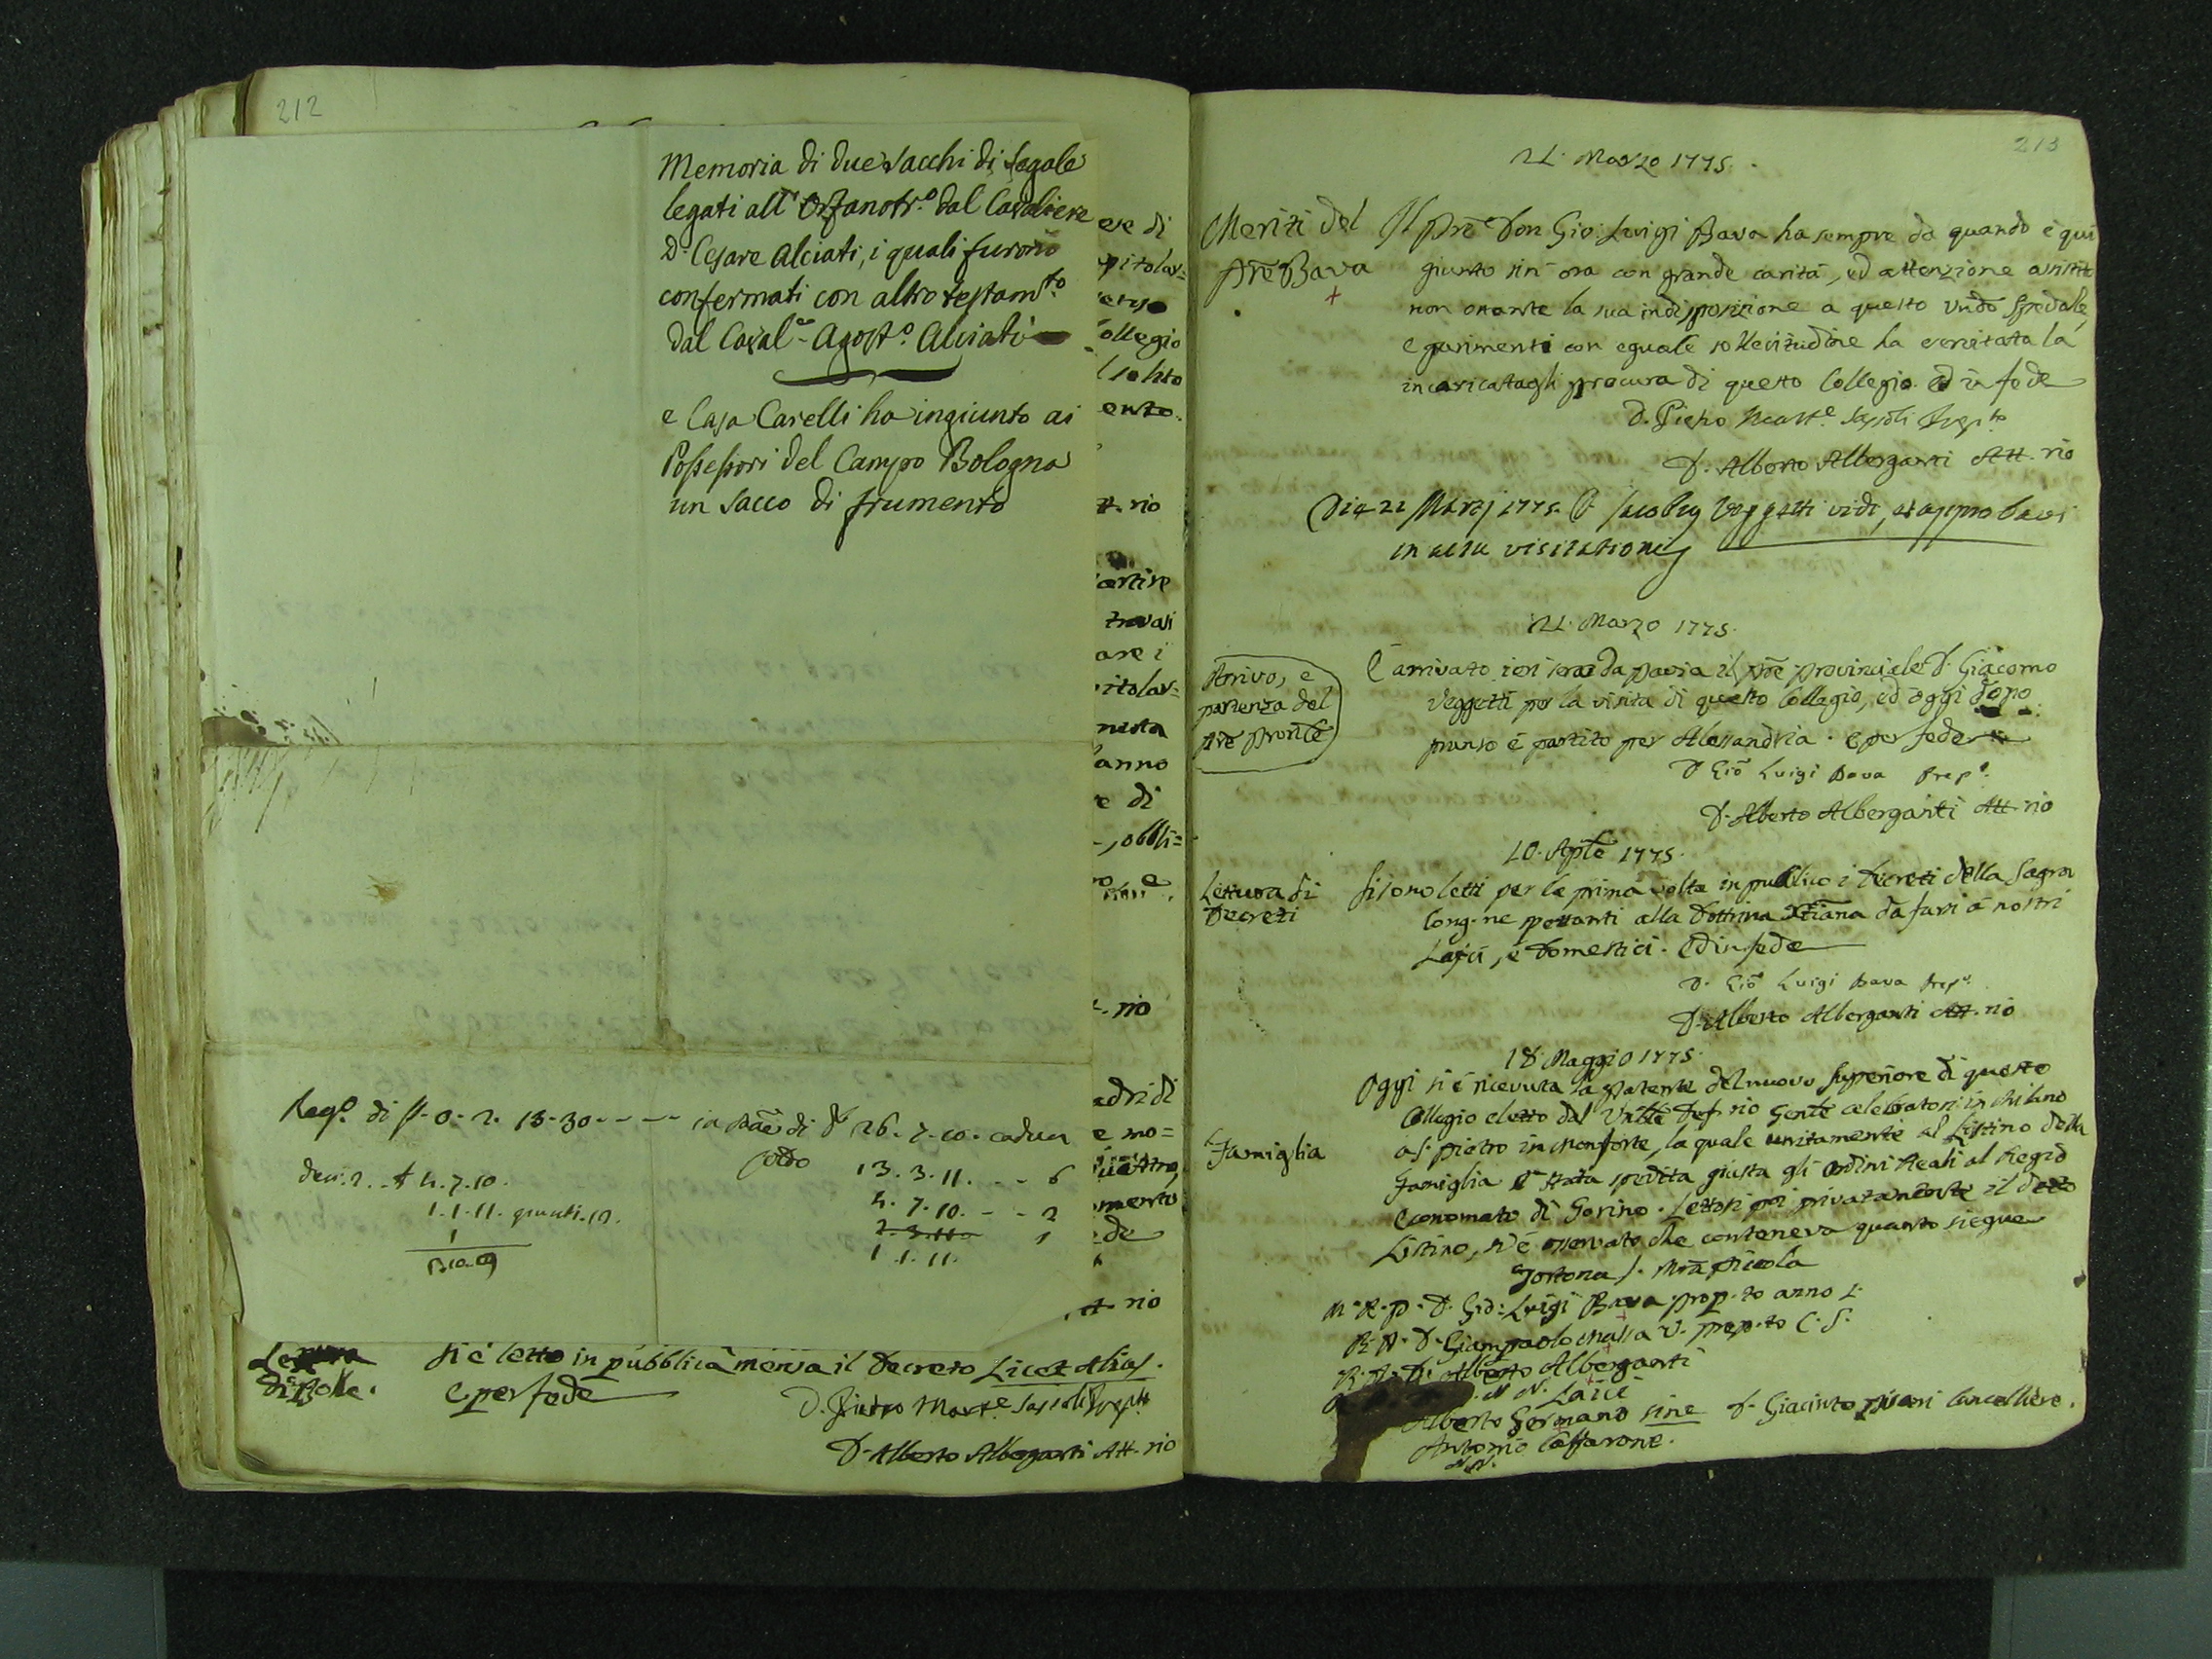 212
Memoria di due sacchi di segale
legati all'Orfanotr.º dal Cavaliere
D. Cesare Alciati, i quali furono
confermati con altro testam.to
dal Caval.e Agost.º Alciati
e Casa Carelli ha ingiunto ai
Possessori del Campo Bologna
un sacco di frumento
ere di
ollegio
l solito
ento.
tt. rio
artire
are i
anno
e di
, obbli=
rio
adri di
e mo=
mento
de
tt. rio
13.3.11. -- 6
4.7.10. -- 2
1.1.11.
Lettura
di Bolle.
Si è letto in pubblica mensa il Decreto Licet Alias.
E per fede
D. Alberto Alberganti Att. rio
213
21. Marzo 1775.
Meriti del
Prē Bava
Il Prē Don Gio: Luigi Bava ha sempre da quando è quì
giunto sin ora con grande carità, ed attenzione assistit
non ostante la sua indisposizione a questo Vndo Spedale,
e parimenti con eguale sollecitudine ha esercitata la
incaricatagli procura di questo Collegio. Ed in fede
D. Alberto Alberganti Att. rio
Die 22 Martij 1775. D. Jacobus Veggetti vidi, et approbavi
in actu visitationis
21. Marzo 1775.
Arrivo, e
partenza del
Prē Provlē
È arrivato ieri sera da Pavia il Prē Provinciale D. Giacomo
Veggetti per la visita di questo Collegio, ed oggi dopo
pranso è partito per Alessandria. E per fede
D. Gio Luigi Bava Prep.º
D. Alberto Alberganti Att. rio
10. Aplē 1775.
Lettura di
Decreti
Si sono letti per la prima volta in pubblico i Decreti della Sagra
Cong. ne spettanti alla Dottrina Xtiana da farsi a nostri
Laici, e Domestici. Ed in fede
D. Gio Luigi Bava Prep.º
D. Alberto Alberganti Att. rio
18. Maggio 1775.
Famiglia
Oggi si è ricevuta la Patente del nuovo Superiore di questo
Collegio eletto dal Vnble Def. rio Genle celebratosi in Milano
a S. Pietro in Monforte, la quale unitamente al Listino della
Famiglia è stata spedita giusta gli Ordini Reali al Regio
Economato di Torino. Lettosi poi privatamente il detto
Listino, si è osservato che conteneva quanto siegue
Tortona S. Mra Piccola
M. R. P. D. Gio: Luigi Bava Prep. to anno 1.
R. P. D. Giampaolo Massa V. Prep. to C. S.
R. P. D. Alberto Alberganti
N. N. Laici
Alberto Germano sine D. Giacinto Cancelliere.
Antonio Caffarone.
N. N.